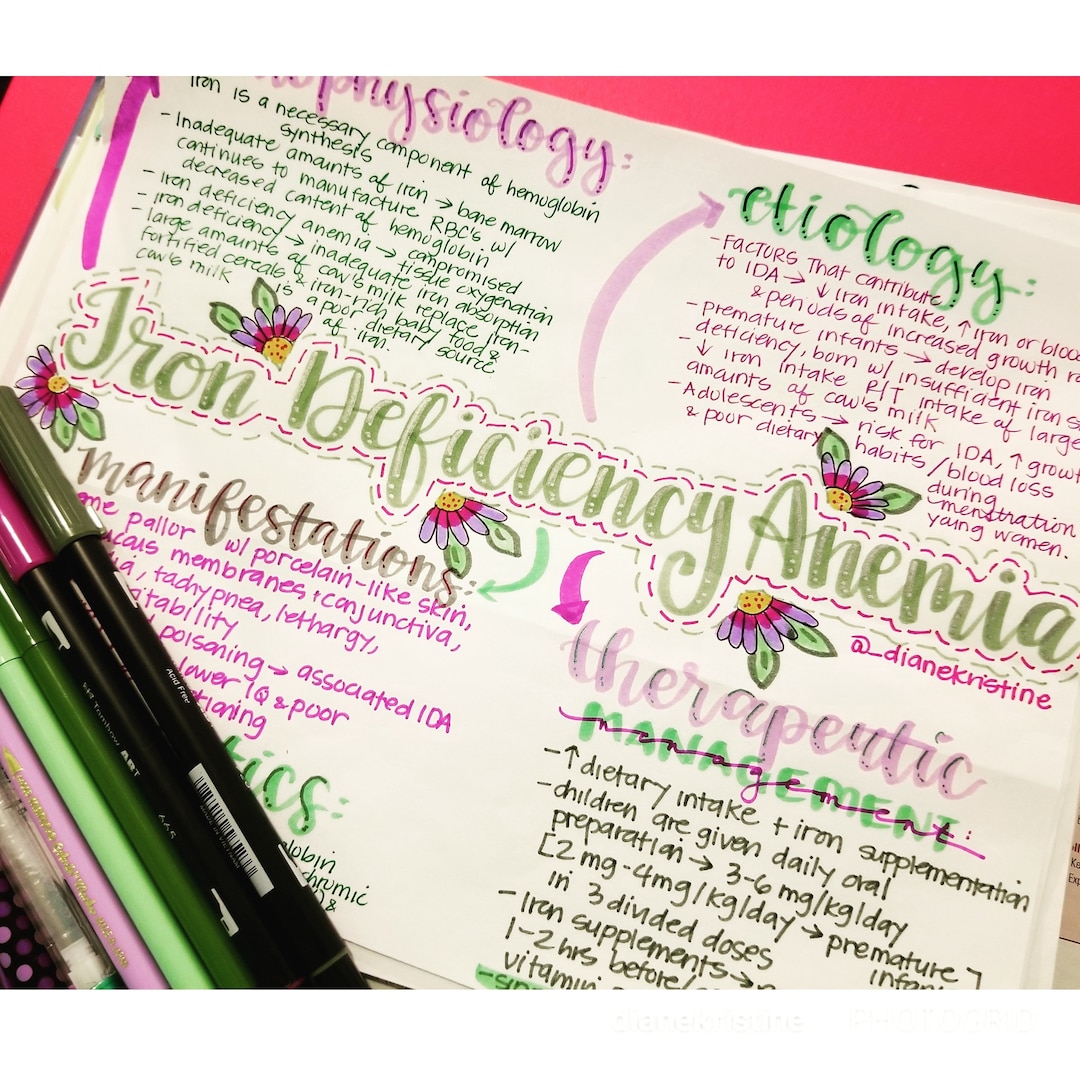 physiology:
Iron is a necessary component of hemoglobin
synthesis
- Inadequate amounts of iron → bone marrow
continues to manufacture RBC's w/
decreased content of hemoglobin
- Iron deficiency anemia → compromised
tissue oxygenation
- iron deficiency → inadequate iron absorption
- large amounts of cow's milk replace iron-
fortified cereals & iron-rich baby food &
cow's milk is a poor dietary source
of iron.
etiology:
- Factors that contribute
to IDA → ↓ iron intake, ↑ iron or bloo
& periods of increased growth ra
- premature infants → develop iron
deficiency, born w/ insufficient iron s
- ↓ iron intake R/T intake of large
amounts of cow's milk
- Adolescents → risk for IDA, ↑ growt
& poor dietary habits / blood loss
during
menstration
young women.
Iron Deficiency Anemia
@_dianekristine
manifestations:
me pallor w/ porcelain-like skin,
membranes + conjunctiva,
, tachypnea, lethargy,
poisoning → associated IDA
lower IQ & poor
tioning
tics:
chromic
&
therapeutic
MANAGEMENT
management:
- ↑ dietary intake + iron supplementation
- children are given daily oral
preparation → 3-6 mg/kg/day
[2 mg - 4mg/kg/day → premature]
in 3 divided doses
- Iron supplements →
1-2 hrs before/
vitamin
Acid Free
Tombow ABT
665
dianekristine
PHOTOGRID